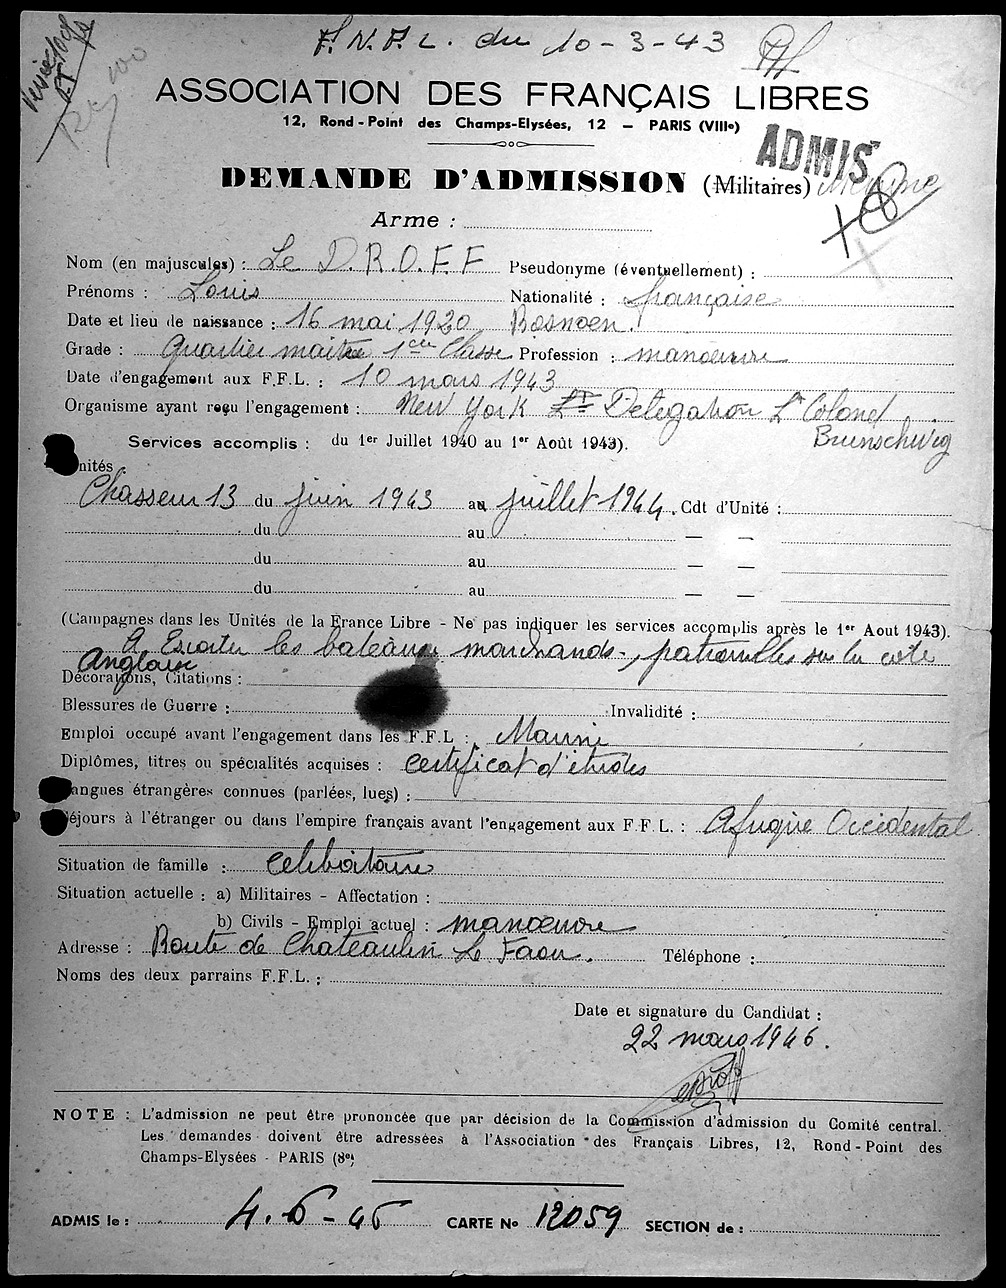 F.N.F.L. du 10-3-43
100
ASSOCIATION DES FRANÇAIS LIBRES
12, Rond-Point des Champs-Elysées, 12 — PARIS (VIIIe)
ADMIS
DEMANDE D'ADMISSION (Militaires)
Arme :
Nom (en majuscules) : Le D.R.O.F.F Pseudonyme (éventuellement) :
Prénoms : Louis Nationalité : française
Date et lieu de naissance : 16 mai 1920 Rosnoen.
Grade : Quartier maitre 1ere Classe Profession : manoeuvre
Date d'engagement aux F.F.L. : 10 mars 1943
Organisme ayant reçu l'engagement : New York Délégation Lt Colonel
Brunschwig
Services accomplis : du 1er Juillet 1940 au 1er Août 1943).
nités :
Chasseur 13 du juin 1943 au juillet 1944. Cdt d'Unité :
du au — —
du au — —
du au — —
(Campagnes dans les Unités de la France Libre - Ne pas indiquer les services accomplis après le 1er Aout 1943).
A Escorter les bateaux marchands-, patrouilles sur la cote
Anglaise
Décorations, Citations :
Blessures de Guerre : Invalidité :
Emploi occupé avant l'engagement dans les F.F.L : Marin
Diplômes, titres ou spécialités acquises : certificat d'études
angues étrangères connues (parlées, lues) :
éjours à l'étranger ou dans l'empire français avant l'engagement aux F.F.L. : Afrique Occidental
Situation de famille : celibataire
Situation actuelle : a) Militaires - Affectation :
b) Civils - Emploi actuel : manoeuvre
Adresse : Route de Chateaulin Le Faou. Téléphone :
Noms des deux parrains F.F.L. :
Date et signature du Candidat :
22 mars 1946.
NOTE : L'admission ne peut être prononcée que par décision de la Commission d'admission du Comité central.
Les demandes doivent être adressées à l'Association des Français Libres, 12, Rond-Point des
Champs-Elysées - PARIS (8e)
ADMIS le : 4.6-46 CARTE No 12059 SECTION de :